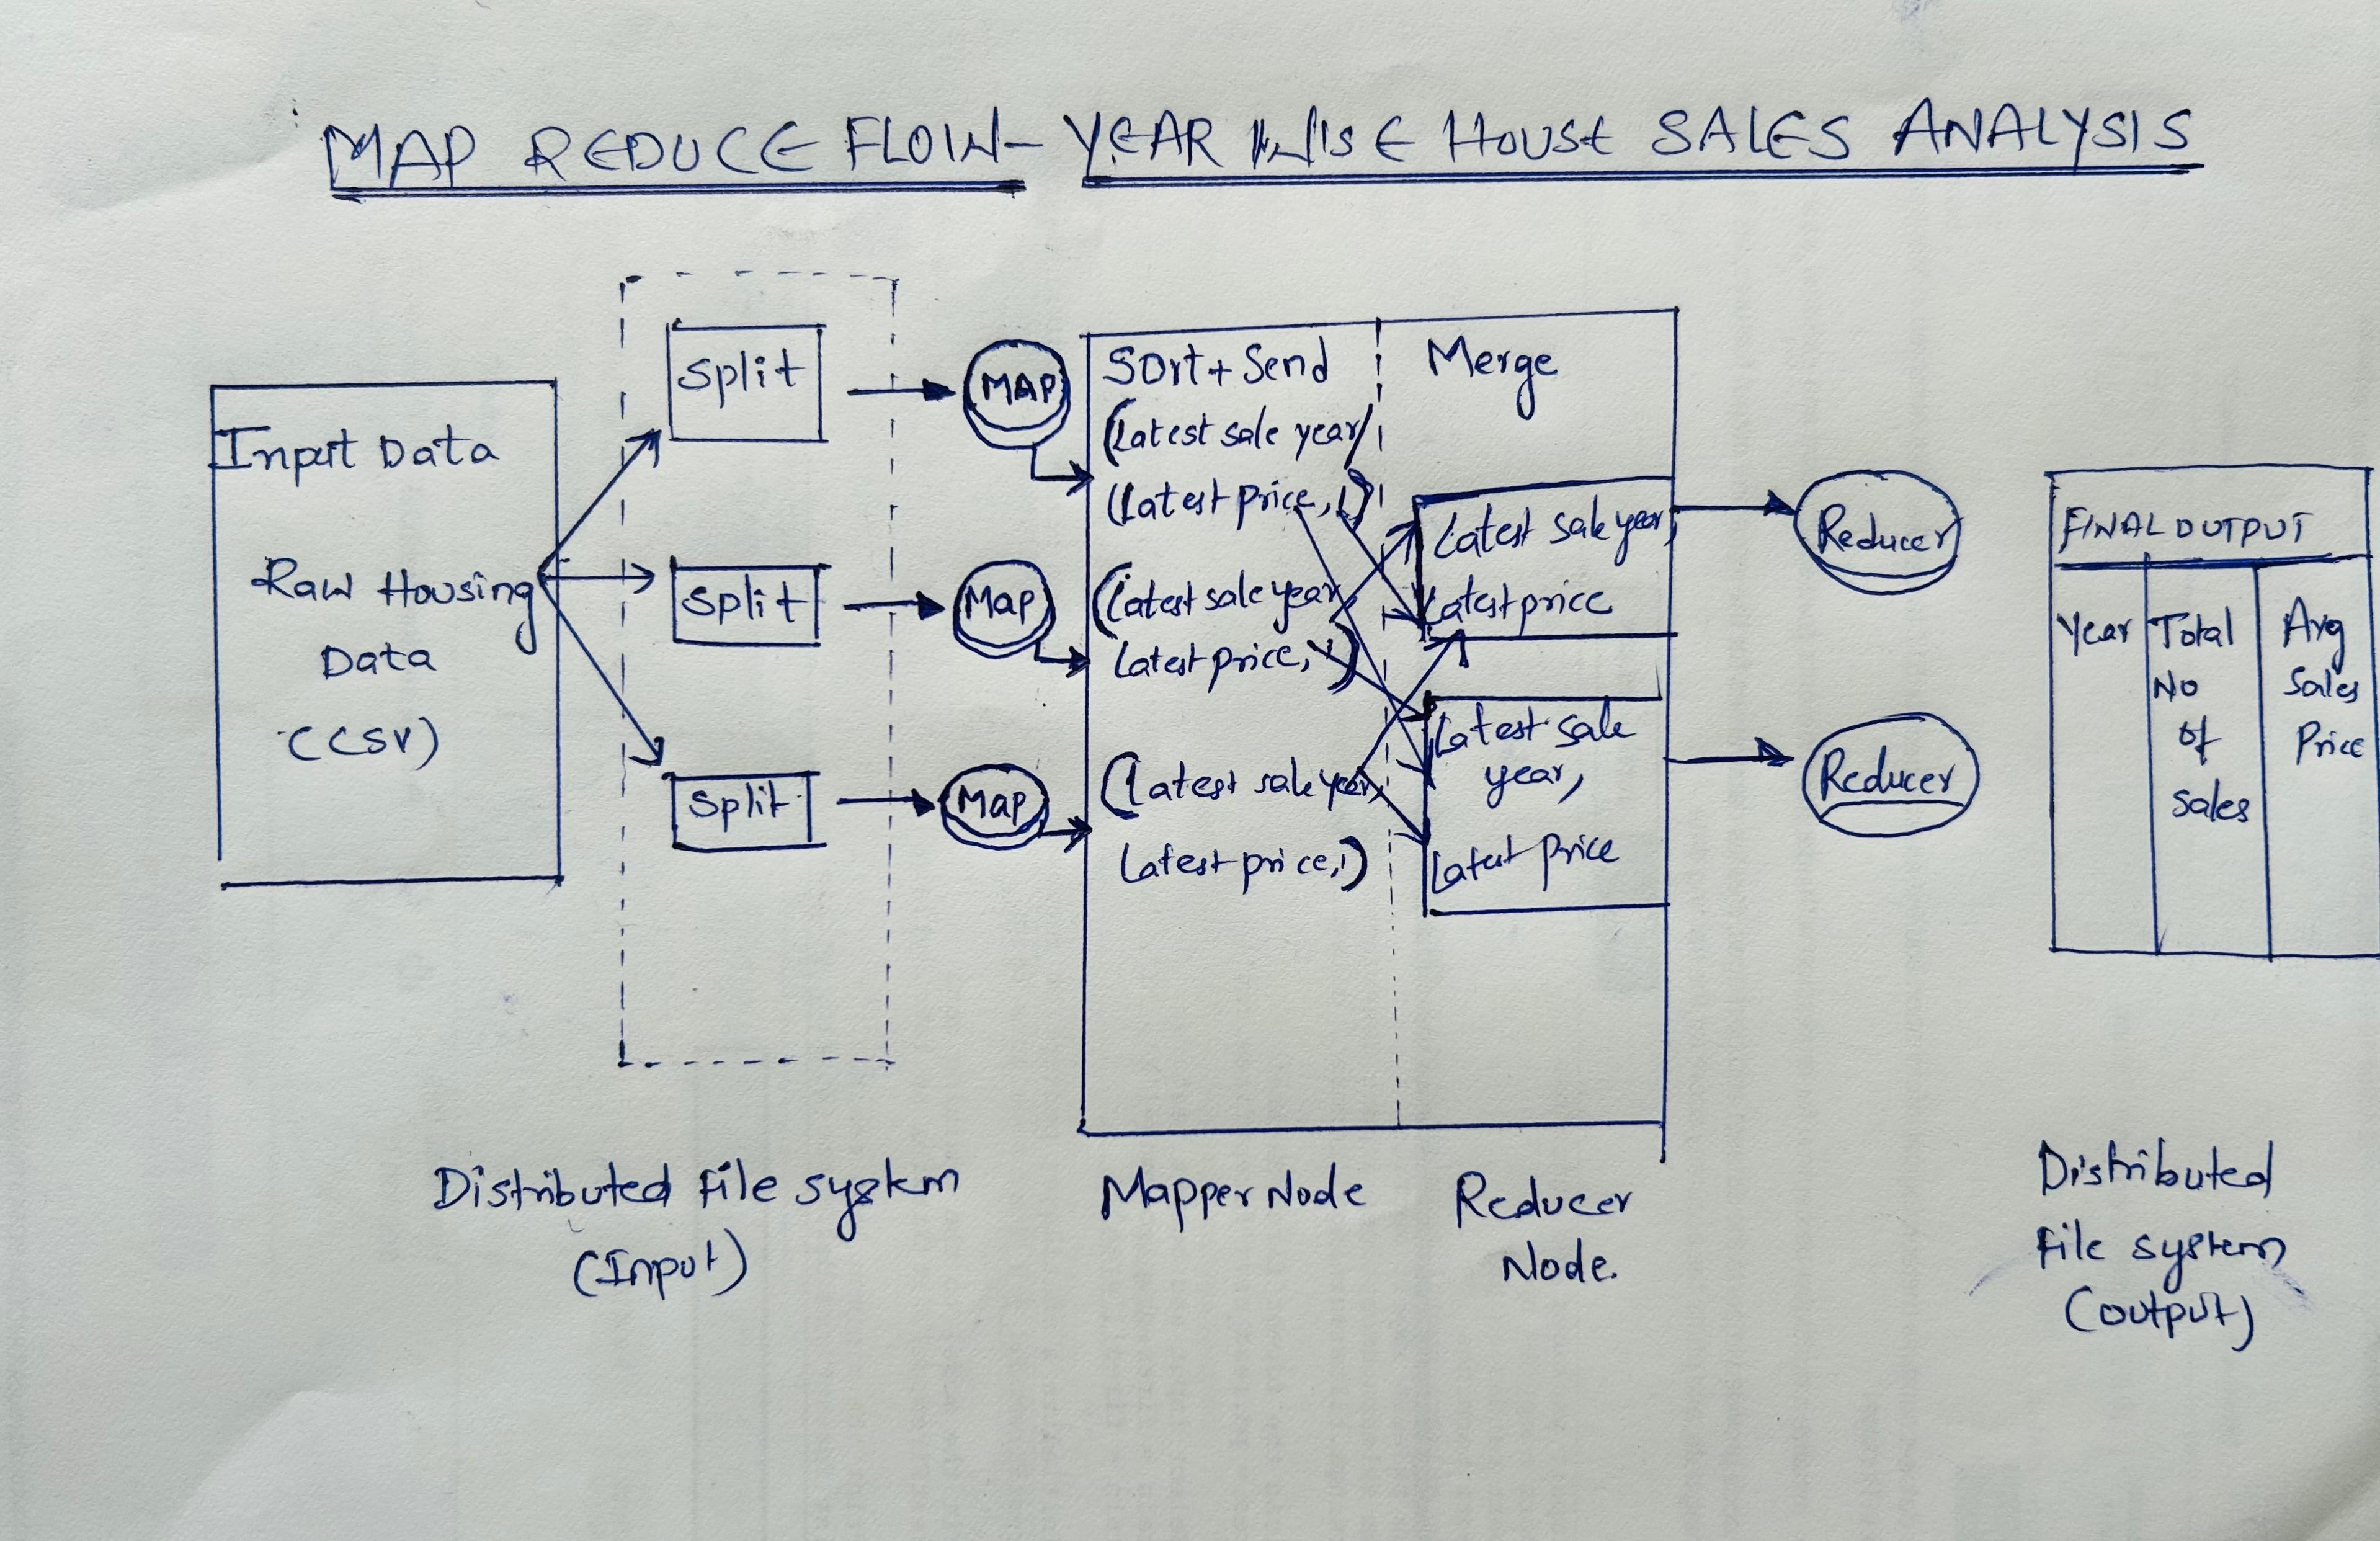 MAP REDUCE FLOW- YEAR WISE HOUSE SALES ANALYSIS
Input Data
Raw Housing
Data
(CSV)
Split
Split
Split
MAP
Map
Map
Sort + Send
(Latest sale year,
(Latest price, 1)
(Latest sale year,
Latest price, 1)
(Latest sale year,
Latest price, 1)
Merge
Latest sale year,
Latest price
Latest sale
year,
Latest Price
Reducer
Reducer
FINAL OUTPUT
Year
Total
No
of
sales
Avg
Sales
Price
Distributed File system
(Input)
Mapper Node
Reducer
Node.
Distributed
File system
(output)